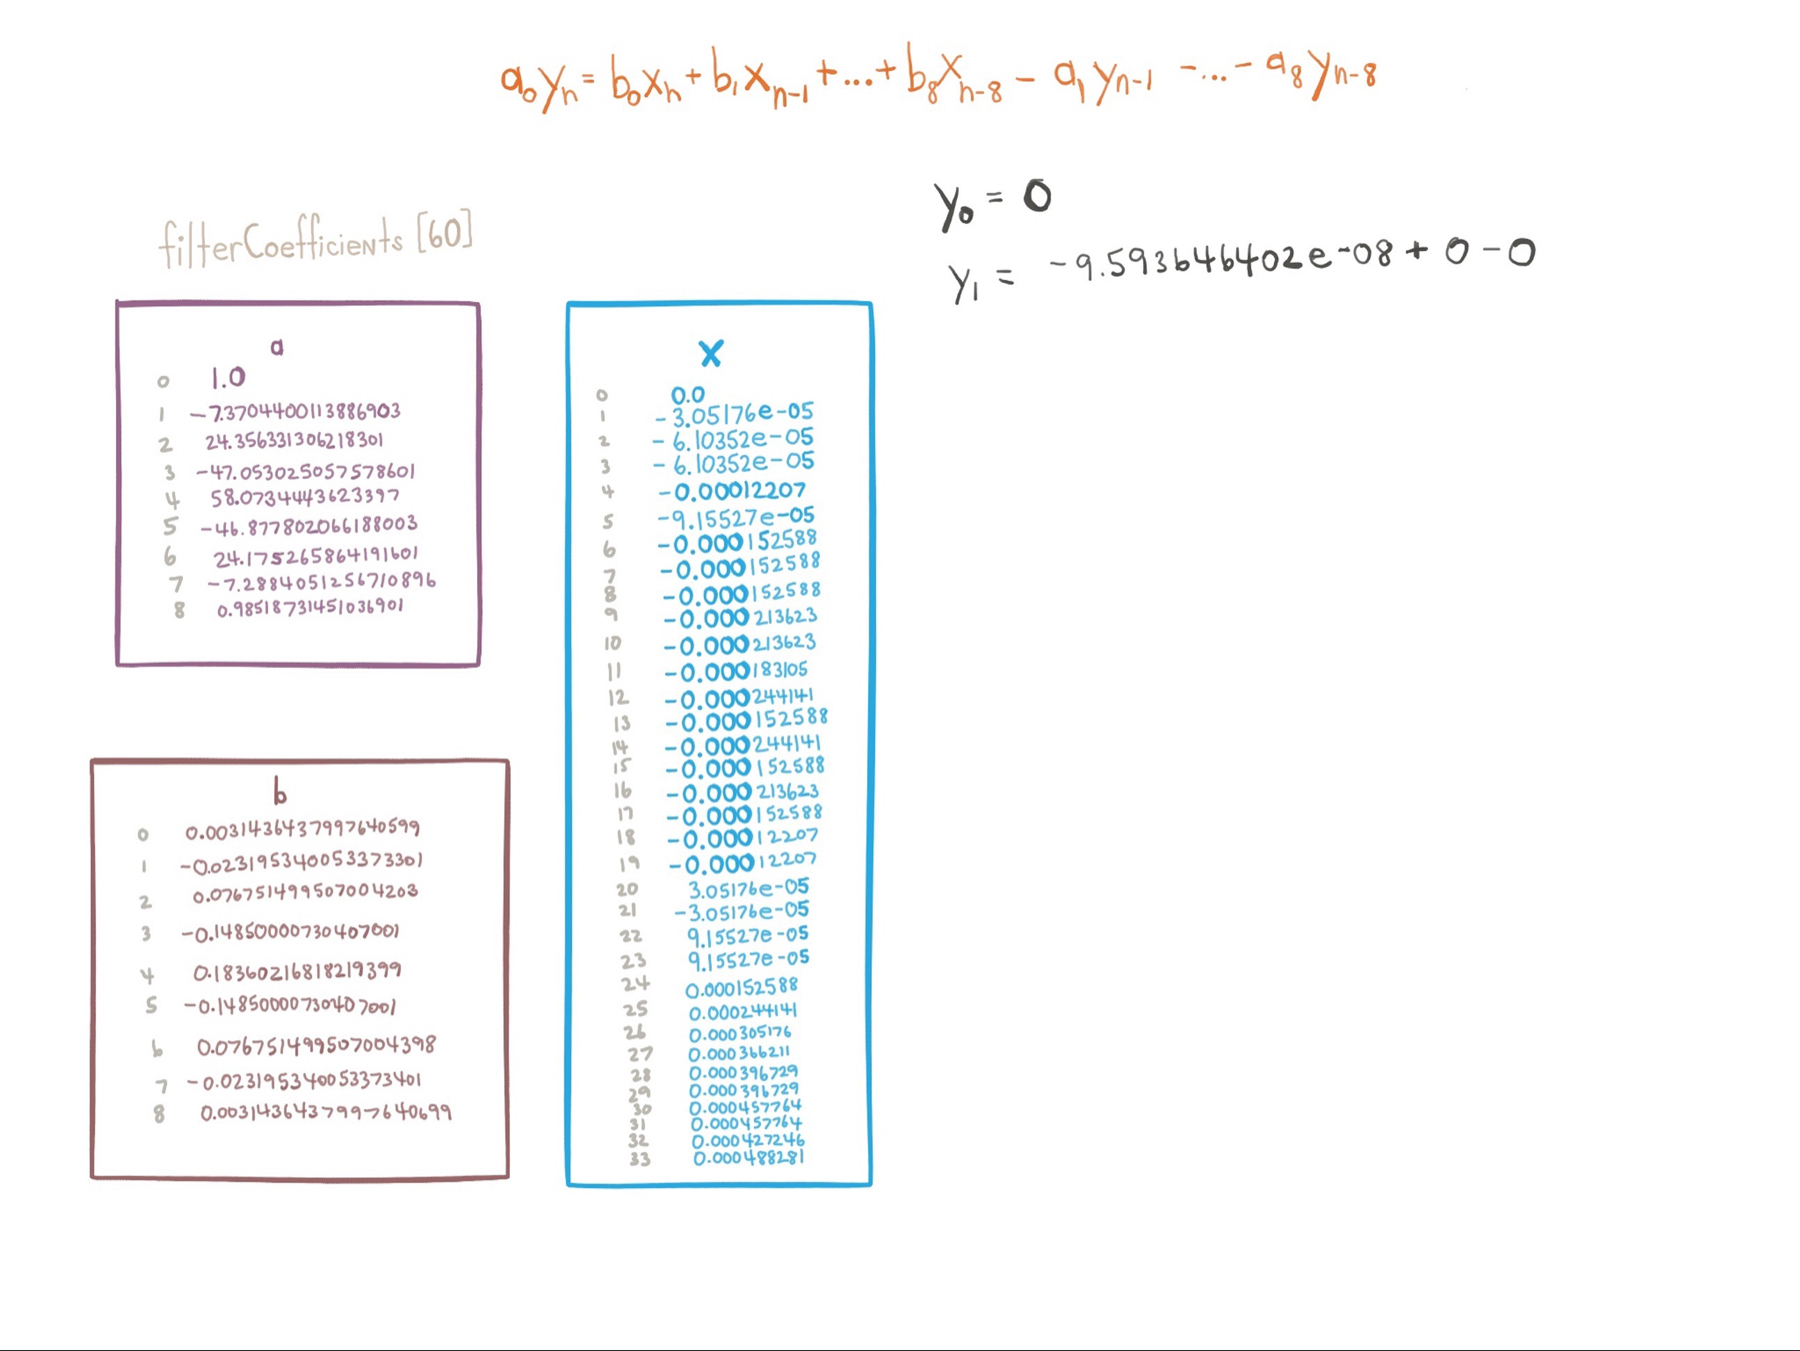 a₀yₙ = b₀xₙ + b₁xₙ₋₁ + ... + b₈xₙ₋₈ − a₁yₙ₋₁ − ... − a₈yₙ₋₈
y₀ = 0
y₁ = -9.593646402e-08 + 0 - 0
filterCoefficients [60]
a
0 1.0
1 -7.3704400113886903
2 24.356331306218301
3 -47.053025057578601
4 58.0734443623397
5 -46.877802066188003
6 24.175265864191601
7 -7.2884051256710896
8 0.98518731451036901
b
0 0.0031436437997640599
1 -0.023195340053373301
2 0.0767514995070042O3
3 -0.14850000730407001
4 0.18360216818219399
5 -0.14850000730407001
6 0.076751499507004398
7 -0.023195340053373401
8 0.0031436437997640699
X
0 0.0
1 -3.05176e-05
2 -6.10352e-05
3 -6.10352e-05
4 -0.00012207
5 -9.15527e-05
6 -0.000152588
7 -0.000152588
8 -0.000152588
9 -0.000213623
10 -0.000213623
11 -0.000183105
12 -0.000244141
13 -0.000152588
14 -0.000244141
15 -0.000152588
16 -0.000213623
17 -0.000152588
18 -0.00012207
19 -0.00012207
20 3.05176e-05
21 -3.05176e-05
22 9.15527e-05
23 9.15527e-05
24 0.000152588
25 0.000244141
26 0.000305176
27 0.000366211
28 0.000396729
29 0.000396729
30 0.000457764
31 0.000457764
32 0.000427246
33 0.000488281